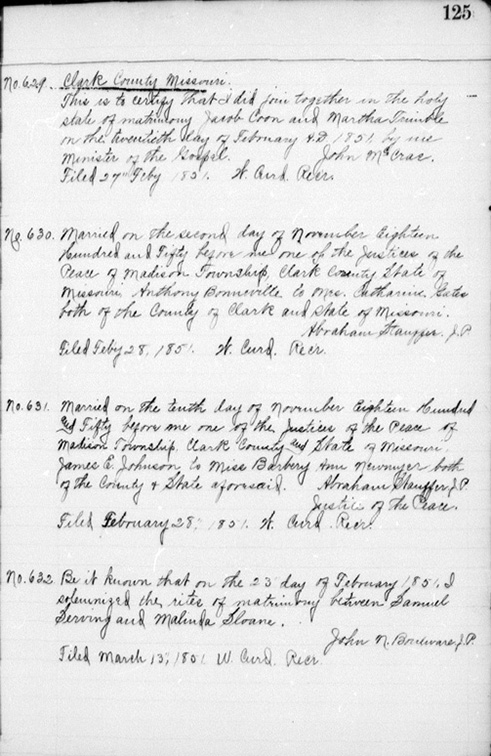 125
No. 629. Clark County Missouri.
This is to certify that I did join together in the holy
state of matrimony Jacob Coon and Martha Trimble
on the twentieth day of February A.D. 1851, by me
Minister of the Gospel. John McCrae.
Filed 27th Feby 1851. W. Curd. Recr.
No. 630. Married on the second day of November Eighteen
Hundred and Fifty before me one of the Justices of the
Peace of Madison Township, Clark County State of
Missouri, Anthony Bonneville to Mrs. Catharine Gates
both of the County of Clark and State of Missouri.
Abraham Stauffer. J.P.
Filed Feby 28, 1851. W. Curd. Recr.
No. 631. Married on the tenth day of November Eighteen Hundred
and Fifty before me one of the Justices of the Peace of
Madison Township, Clark County and State of Missouri.
James E. Johnson to Miss Barbery Ann Newmyer both
of the County & State aforesaid. Abraham Stauffer, J.P.
Justice of the Peace.
Filed February 28, 1851. W. Curd. Recr.
No. 632. Be it known that on the 23 day of February 1851, I
solemnized the rites of matrimony between Samuel
and Malinda Sloane.
John N. Bouleware, J.P.
Filed March 13, 1851. W. Curd. Recr.